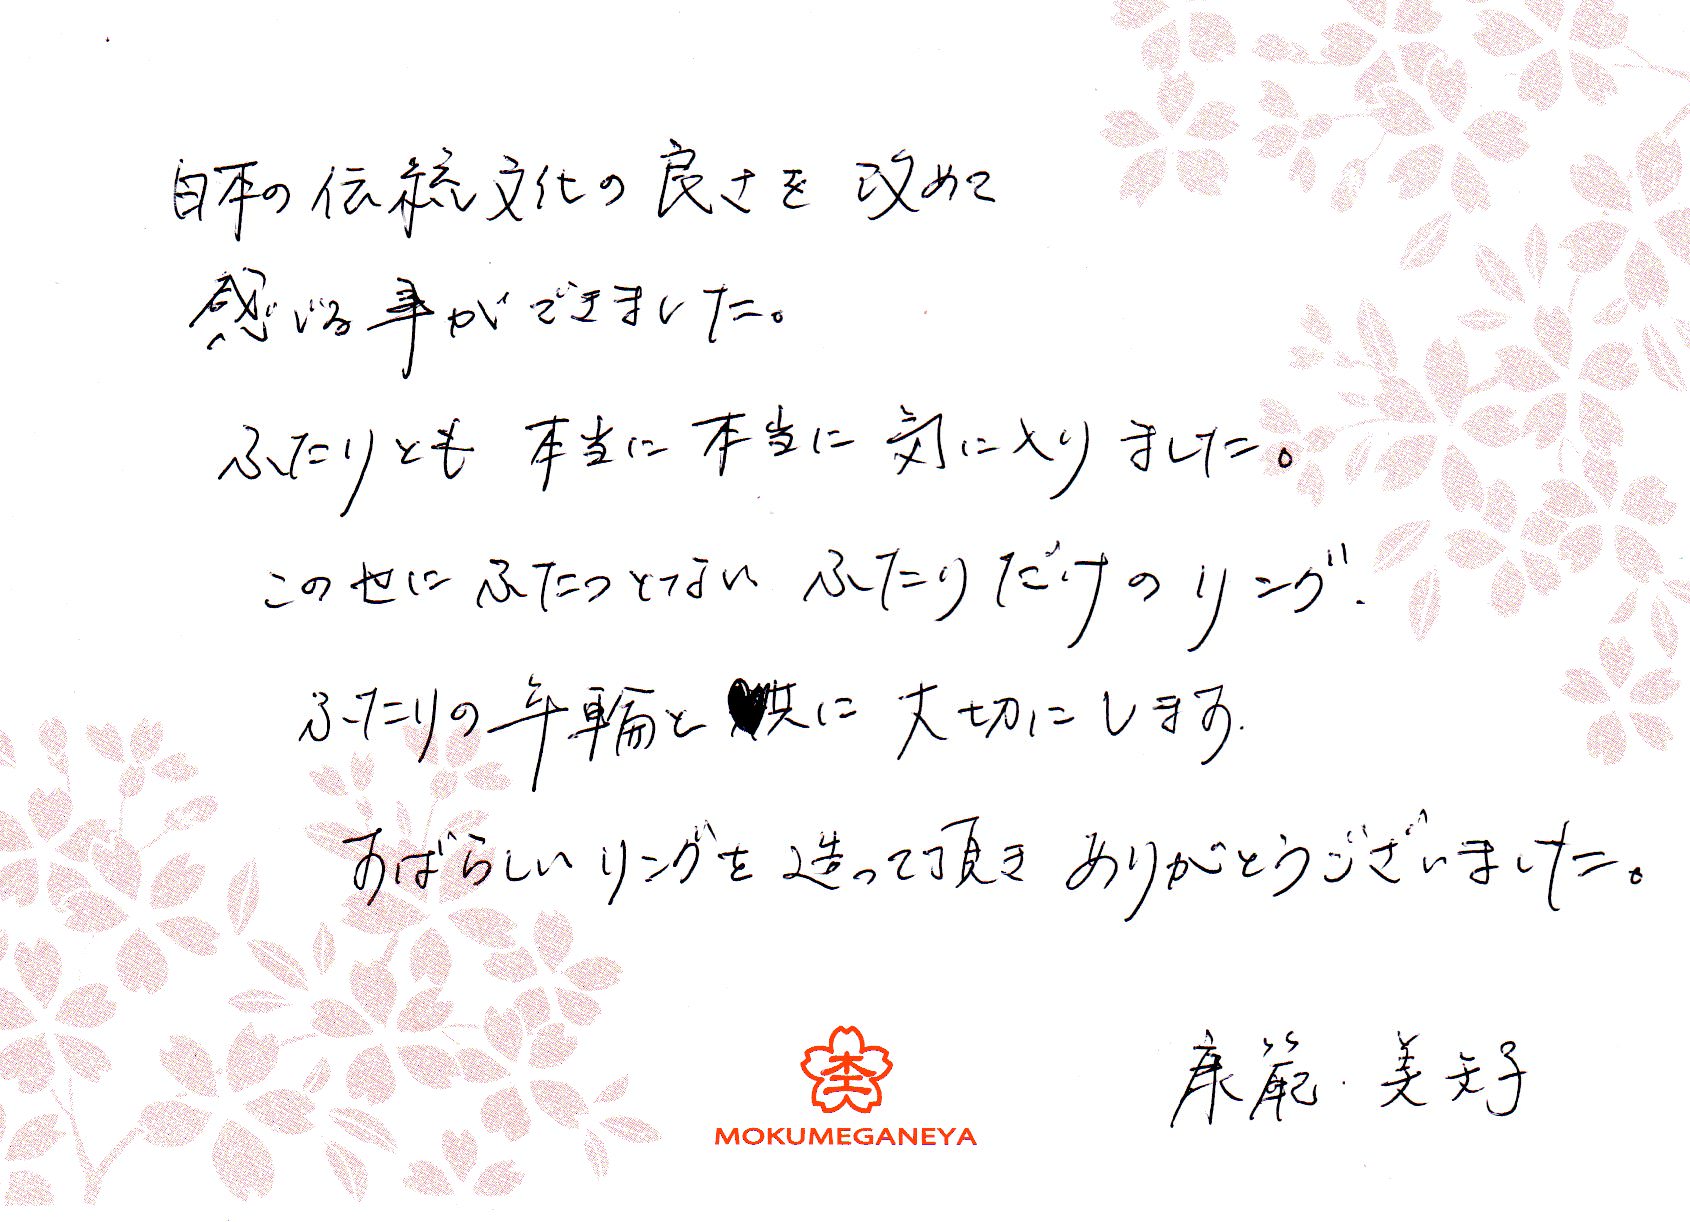 日本の伝統文化の良さを 改めて
感じる事ができました。
ふたりとも 本当に 本当に 気に入りました。
この世に ふたつとない ふたりだけの リング.
ふたりの 年輪と 共に 大切にします.
すばらしい リングを 造って頂き ありがとうございました。
康範・美矢子
MOKUMEGANEYA